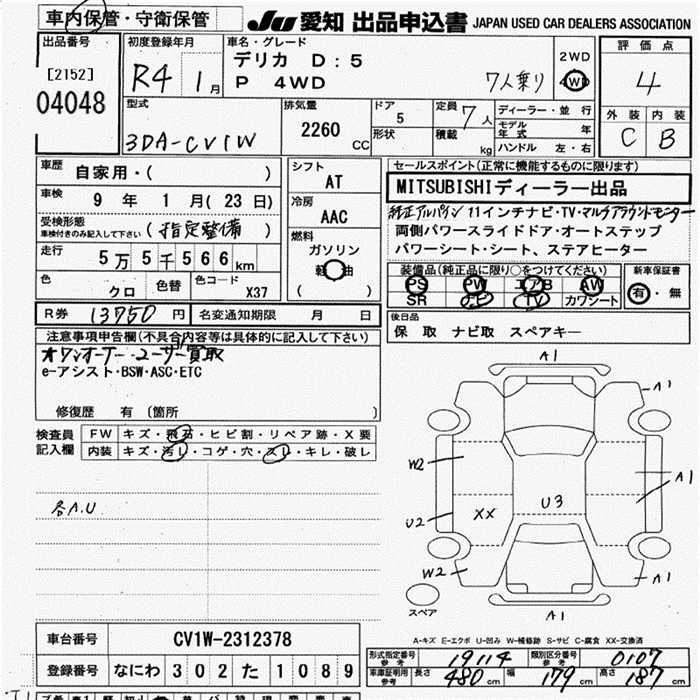 車内保管・守衛保管
JU 愛知 出品申込書 JAPAN USED CAR DEALERS ASSOCIATION
出品番号
[2152]
04048
初度登録年月
R4 1月
車名・グレード
デリカ D:5
P 4WD 7人乗り
2WD
4WD
評価点
4
外装 内装
C B
型式
3DA-CV1W
排気量
2260 CC
ドア
5
形状
定員
7人
積載 kg
ディーラー・並行
モデル年式 年
ハンドル 左・右
車歴
自家用・( )
車検
9年 1月(23日)
受検形態
車検付きのみ記入して下さい (指定整備)
走行
5万5千566km
色
クロ
色替
色コード
X37
シフト
AT
冷房
AAC
燃料
ガソリン
軽油
( )
セールスポイント(正常に機能するものに限ります)
MITSUBISHIディーラー出品
純正アルパイン11インチナビ・TV・マルチアラウンドモニター
両側パワースライドドア・オートステップ
パワーシート・シート、ステアヒーター
装備品(純正品に限り○をつけてください)
PS PW エアB AW
SR ナビ TV カワシート
新車保証書
有・無
R券 13750円
名変通知期限 月 日
後日品
保 取 ナビ取 スペアキー
注意事項申告欄(不具合内容等は具体的に記入して下さい)
ワンオーナー ユーザー買取
e-アシスト・BSW・ASC・ETC
修復歴 有 (箇所 )
検査員
記入欄
FW キズ・飛石・ヒビ割・リペア跡・X要
内装 キズ・汚レ・コゲ・穴・スレ・キレ・破レ
各A.U
A1
A1
W2
A1
XX
U3
U2
W2
A1
A1
スペア
A-キズ E-エクボ U-凹み W-補修跡 S-サビ C-腐食 XX-交換済
車台番号 CV1W-2312378
登録番号 なにわ 302 た 1089
形式指定番号 参考 19114
類別区分番号 参考 0107
車庫証明用 参考 長さ 480cm 幅 179cm 高さ 187cm